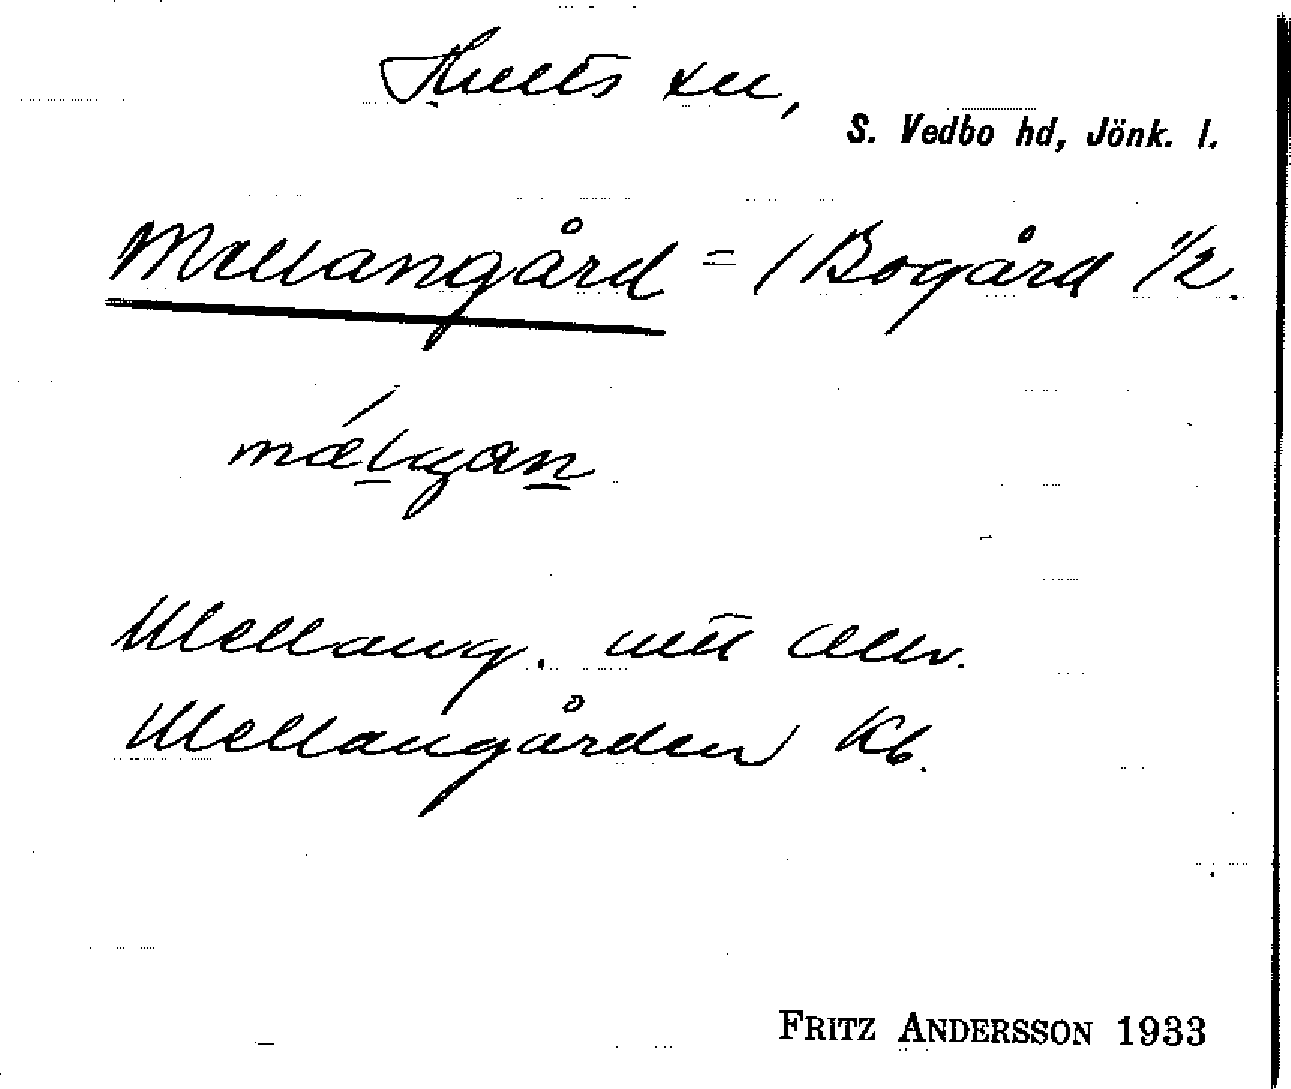 Hults sn,
S. Vedbo hd, Jönk. l.
Mellangård = / Bogård 1/2.
Mellang.
Mellangården Kb.
FRITZ ANDERSSON 1933